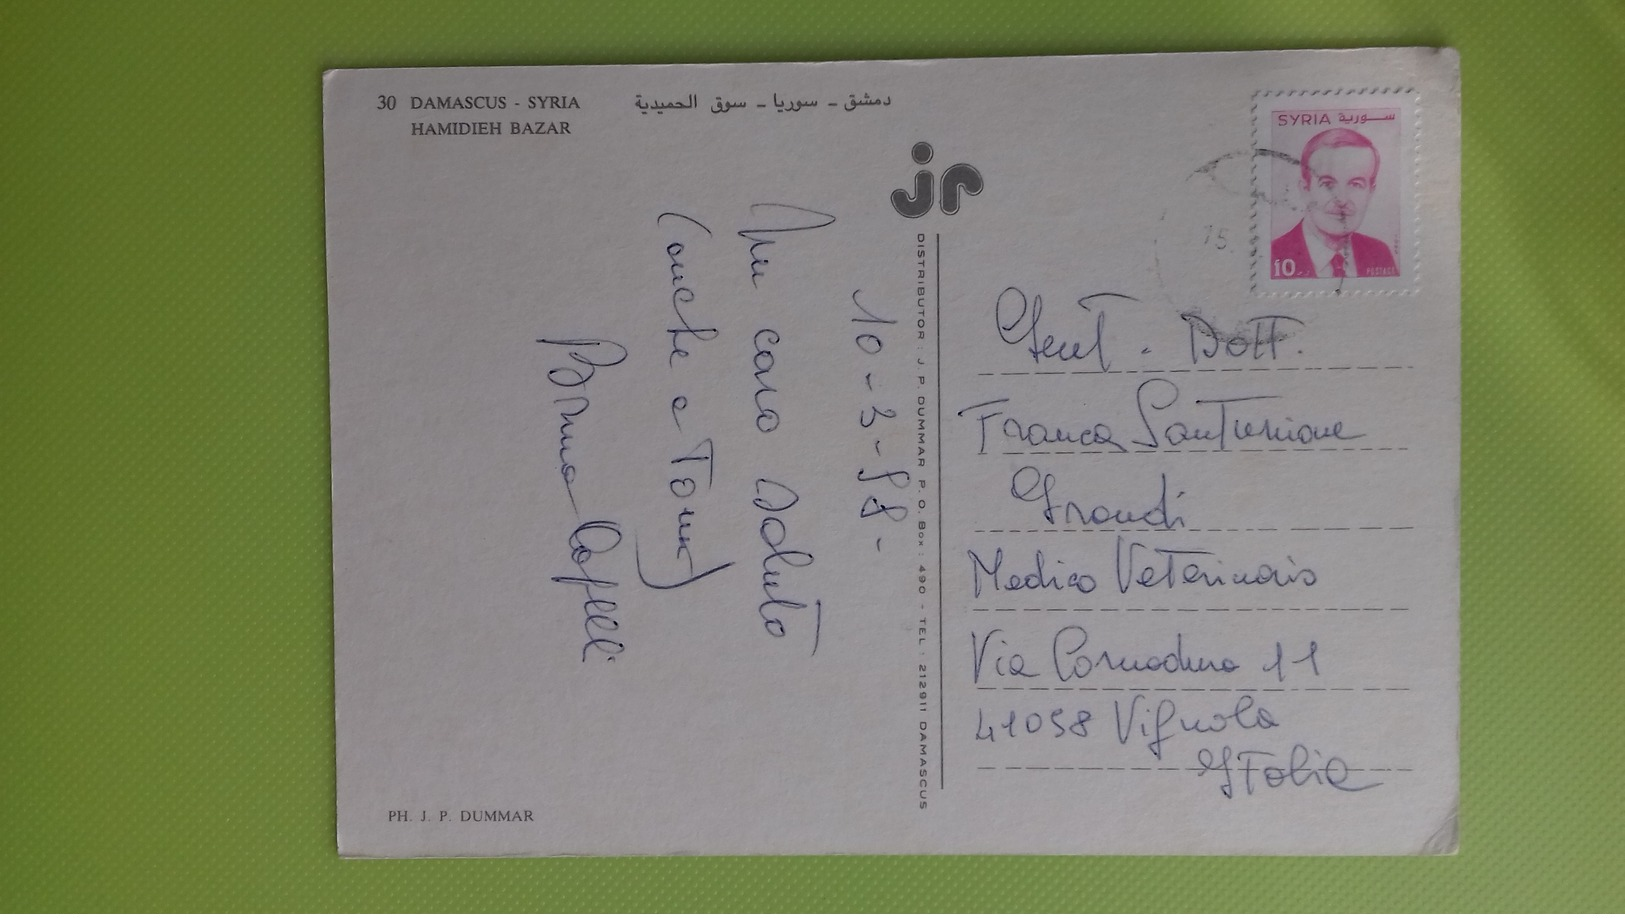 30 DAMASCUS - SYRIA
HAMIDIEH BAZAR
دمشق - سوريا - سوق الحميدية
jr
DISTRIBUTOR : J. P. DUMMAR P. O. Box : 490 - TEL : 212911 DAMASCUS
SYRIA سورية
10
POSTAGE
15
10-3-98-
Un caro saluto
anche a Tommy
Bruno
Gent. Dott.
Franca Santunione
Grandi
Medico Veterinario
Via 11
41058 Vignola
Italia
PH. J. P. DUMMAR